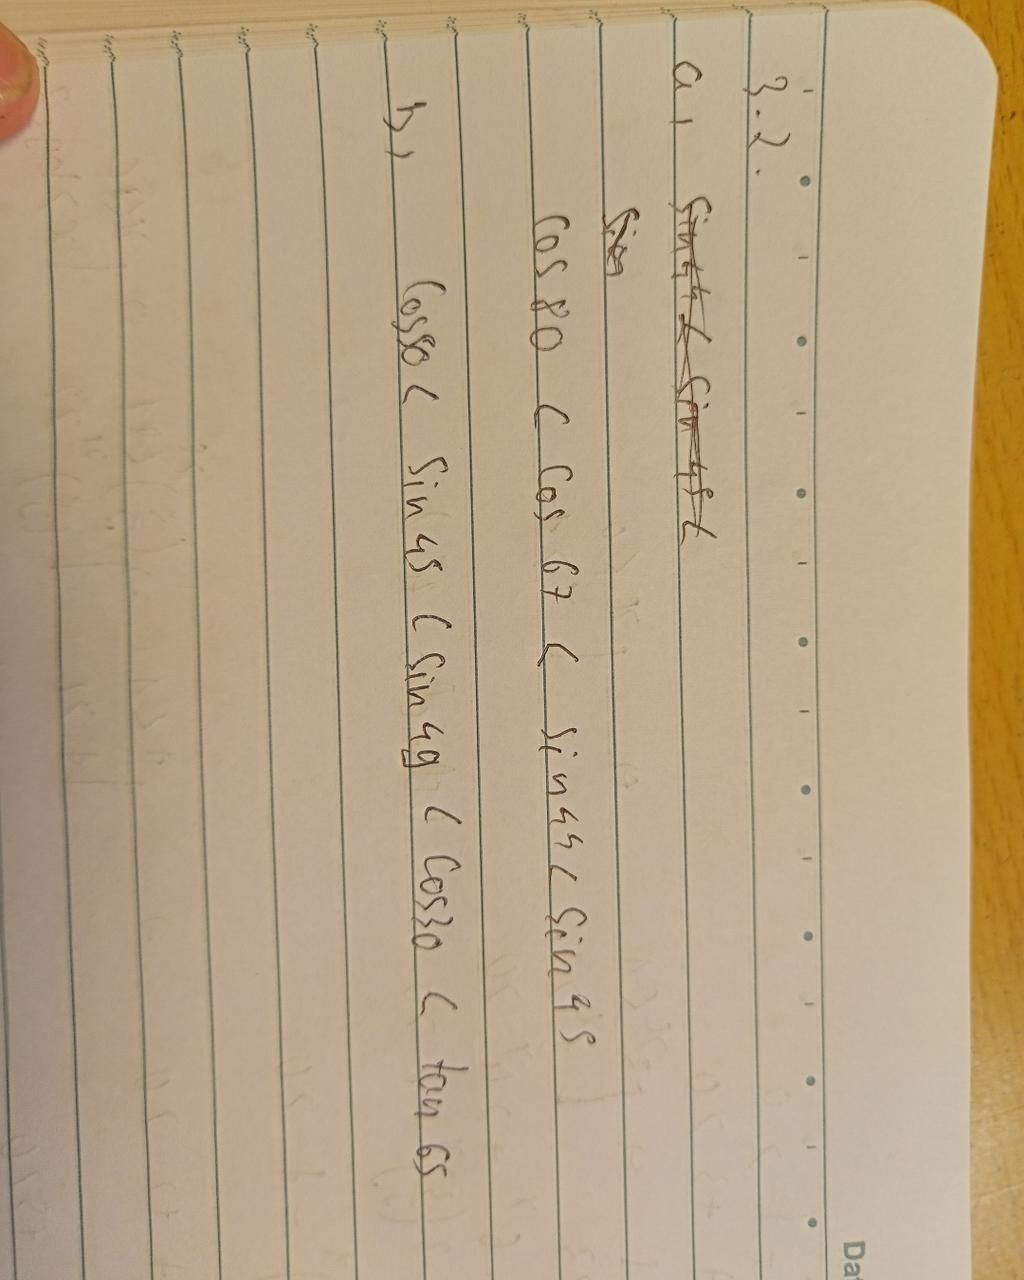 Da
3.2.
a, sin44 < sin45 <
sin
cos 80 < cos 67 < sin 44 < sin 45
b, cos80 < sin 45 < sin 49 < cos30 < tan 65